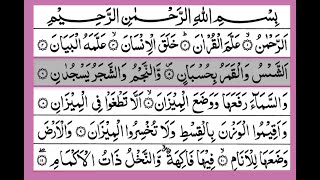 بِسْمِ اللهِ الرَّحْمٰنِ الرَّحِيْمِ
اَلرَّحْمٰنُ ۝ عَلَّمَ الْقُرْاٰنَ ۝ خَلَقَ الْاِنْسَانَ ۝ عَلَّمَهُ الْبَيَانَ ۝
اَلشَّمْسُ وَالْقَمَرُ بِحُسْبَانٍ ۝ وَّالنَّجْمُ وَالشَّجَرُ يَسْجُدٰنِ ۝
وَالسَّمَآءَ رَفَعَهَا وَوَضَعَ الْمِيْزَانَ ۝ اَلَّا تَطْغَوْا فِي الْمِيْزَانِ ۝
وَاَقِيْمُوا الْوَزْنَ بِالْقِسْطِ وَلَا تُخْسِرُوا الْمِيْزَانَ ۝ وَالْاَرْضَ
وَضَعَهَا لِلْاَنَامِ ۝ فِيْهَا فَاكِهَةٌ وَّالنَّخْلُ ذَاتُ الْاَكْمَامِ ۝